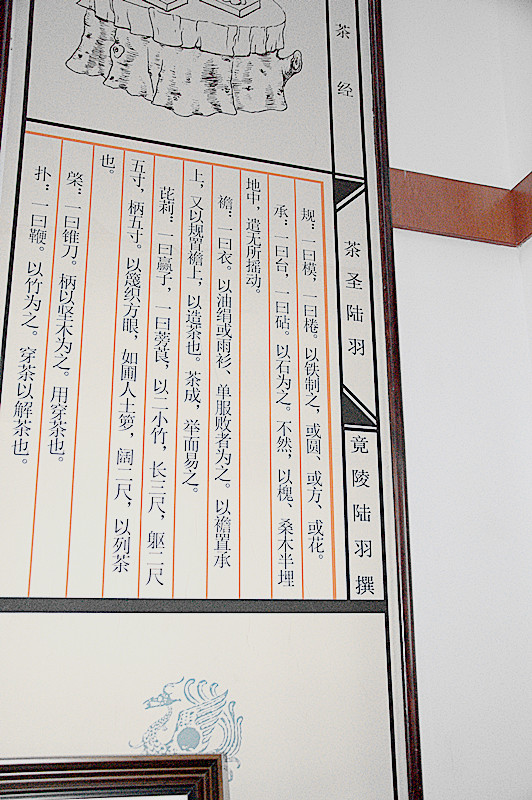 茶经
茶圣陆羽
竟陵陆羽撰
规：一曰模，一曰棬。以铁制之，或圆、或方、或花。
承：一曰台，一曰砧。以石为之。不然，以槐、桑木半埋
地中，遣无所摇动。
襜：一曰衣。以油绢或雨衫、单服败者为之。以襜置承
上，又以规置襜上，以造茶也。茶成，举而易之。
芘莉：一曰赢子，一曰蒡莨，以二小竹，长三尺，躯二尺
五寸，柄五寸。以篾织方眼，如圃人土箩，阔二尺，以列茶
也。
棨：一曰锥刀。柄以坚木为之。用穿茶也。
扑：一曰鞭。以竹为之。穿茶以解茶也。